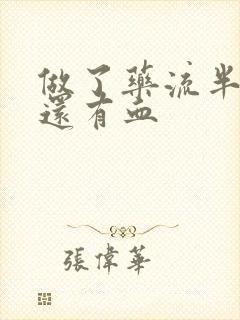 做了藥流半
還有血
張偉華